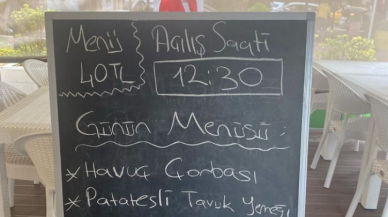 Menü
40TL
Açılış Saati
12:30
Günün Menüsü:
* Havuç Çorbası
* Patatesli Tavuk Yemeği